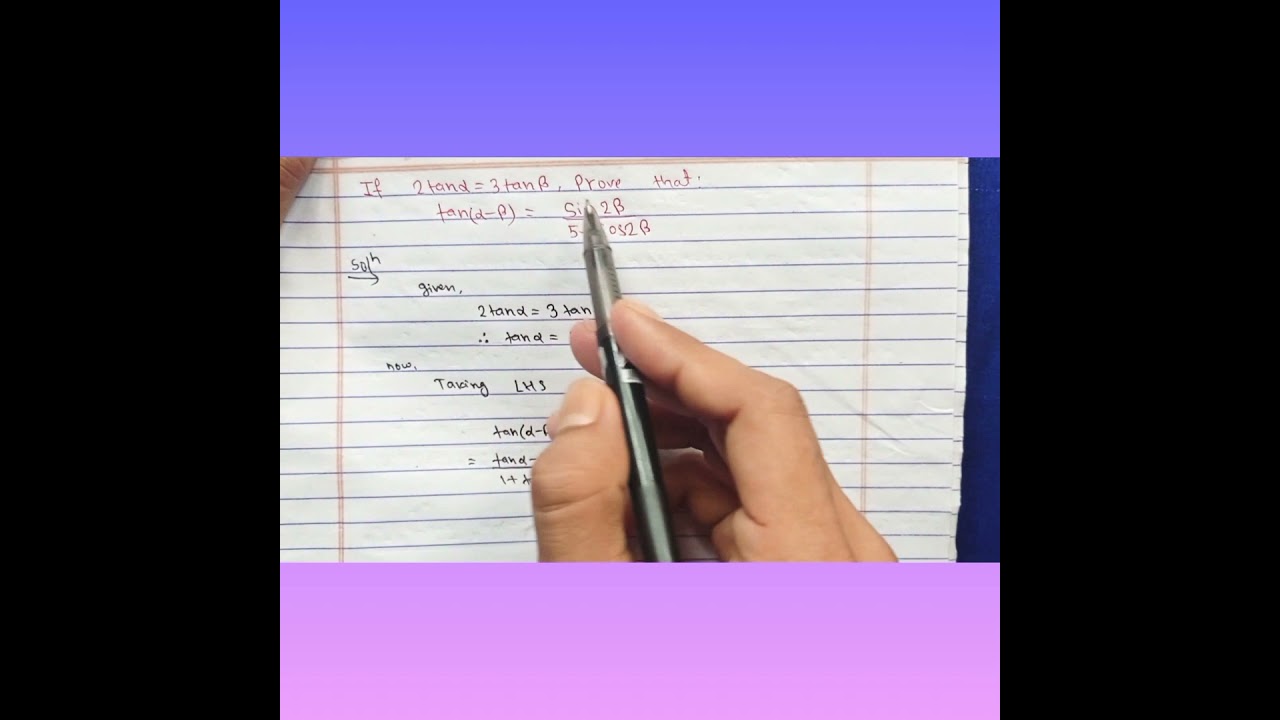 If 2tanα = 3tanβ, Prove that:
tan(α-β) = Sin 2β
5-cos2β
Solⁿ
given,
2tanα = 3 tan
∴ tanα =
now,
Taking LHS
tan(α-β
= tanα-
1+